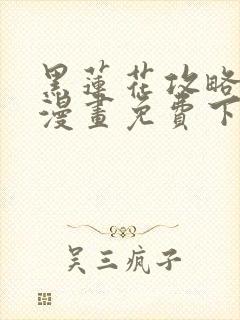 黑蓮花攻略
漫畫免費下
吴三疯子